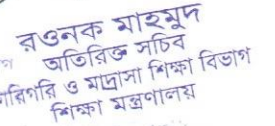 রওনক মাহমুদ
অতিরিক্ত সচিব
কারিগরি ও মাদ্রাসা শিক্ষা বিভাগ
শিক্ষা মন্ত্রণালয়